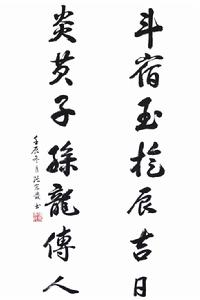 斗宿玉於辰吉日
炎黄子孫龍傳人
壬辰冬月